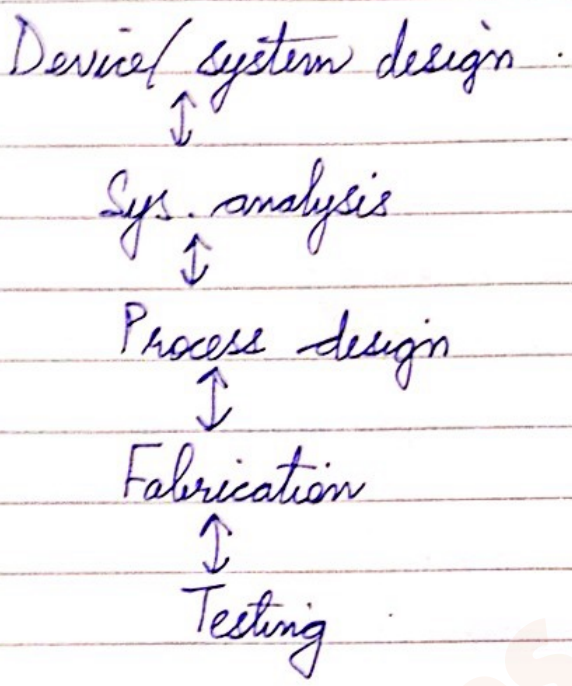 Device/ system design.
↕
Sys. analysis
↕
Process design
↕
Fabrication
↕
Testing